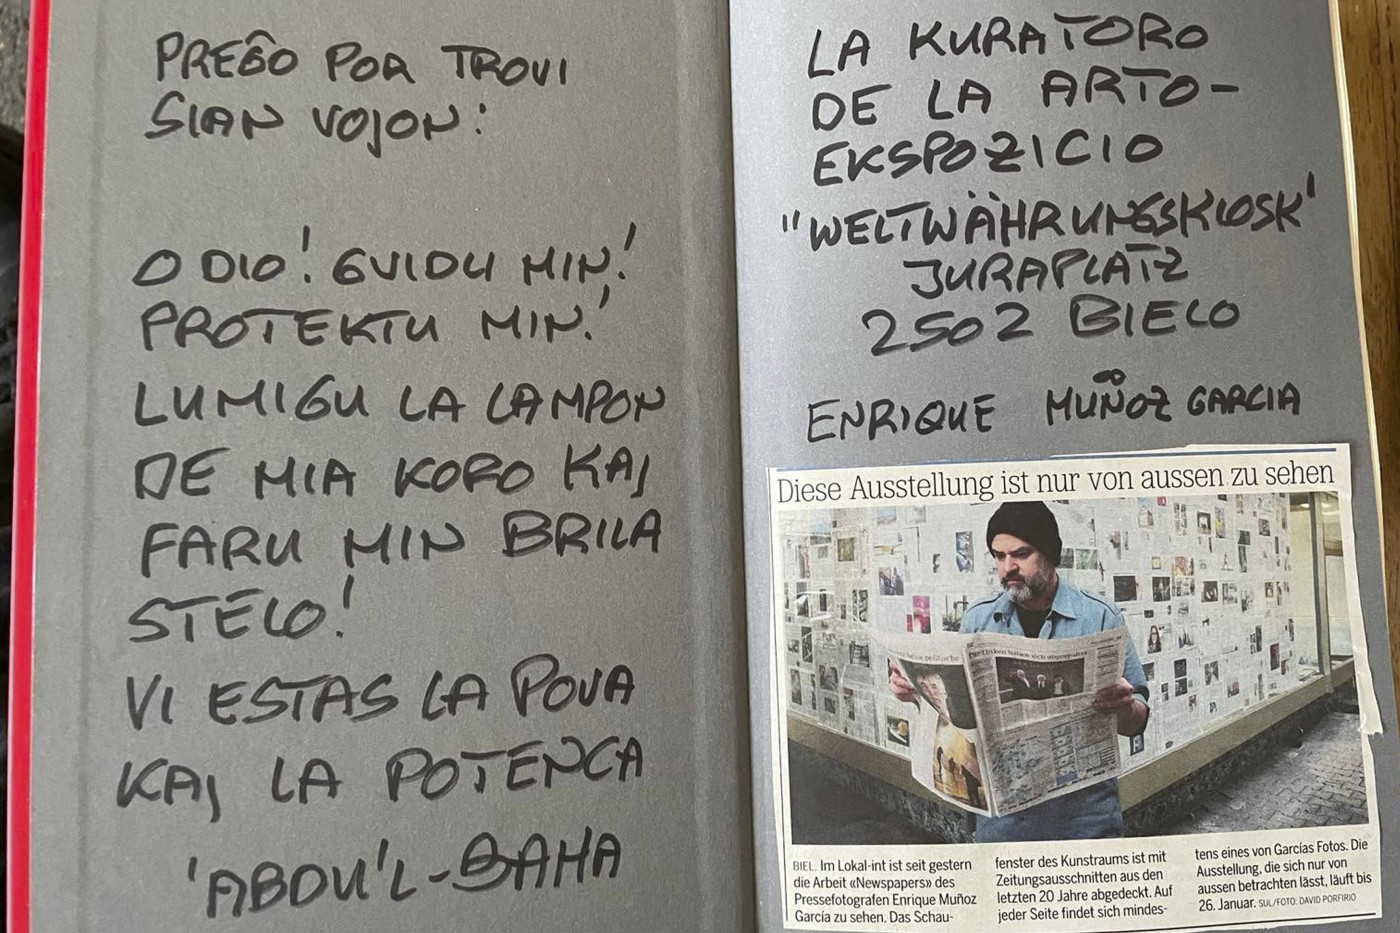 PREĜO POR TROVI
SIAN VOJON:
O DIO! GVIDU MIN!
PROTEKTU MIN!
LUMIGU LA LAMPON
DE MIA KORO KAJ
FARU MIN BRILA
STELO!
VI ESTAS LA POVA
KAJ LA POTENCA
'ABDU'L-BAHA
LA KURATORO
DE LA ARTO-
EKSPOZICIO
"WELTWÄHRUNGSKIOSK"
JURAPLATZ
2502 BIELO
ENRIQUE MUÑOZ GARCIA
Diese Ausstellung ist nur von aussen zu sehen
BIEL. Im Lokal-int ist seit gestern
die Arbeit «Newspapers» des
Pressefotografen Enrique Muñoz
García zu sehen. Das Schau-
fenster des Kunstraums ist mit
Zeitungsausschnitten aus den
letzten 20 Jahre abgedeckt. Auf
jeder Seite findet sich mindes-
tens eines von Garcías Fotos. Die
Ausstellung, die sich nur von
aussen betrachten lässt, läuft bis
26. Januar. SUL/FOTO: DAVID PORFIRIO